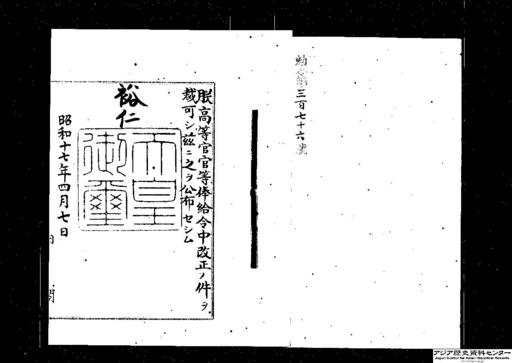 勅令第三百七十六號
朕高等官官等俸給令中改正ノ件ヲ
裁可シ茲ニ之ヲ公布セシム
裕仁
天皇
御璽
昭和十七年四月七日
内閣
アジア歴史資料センター
Japan Center for Asian Historical Records